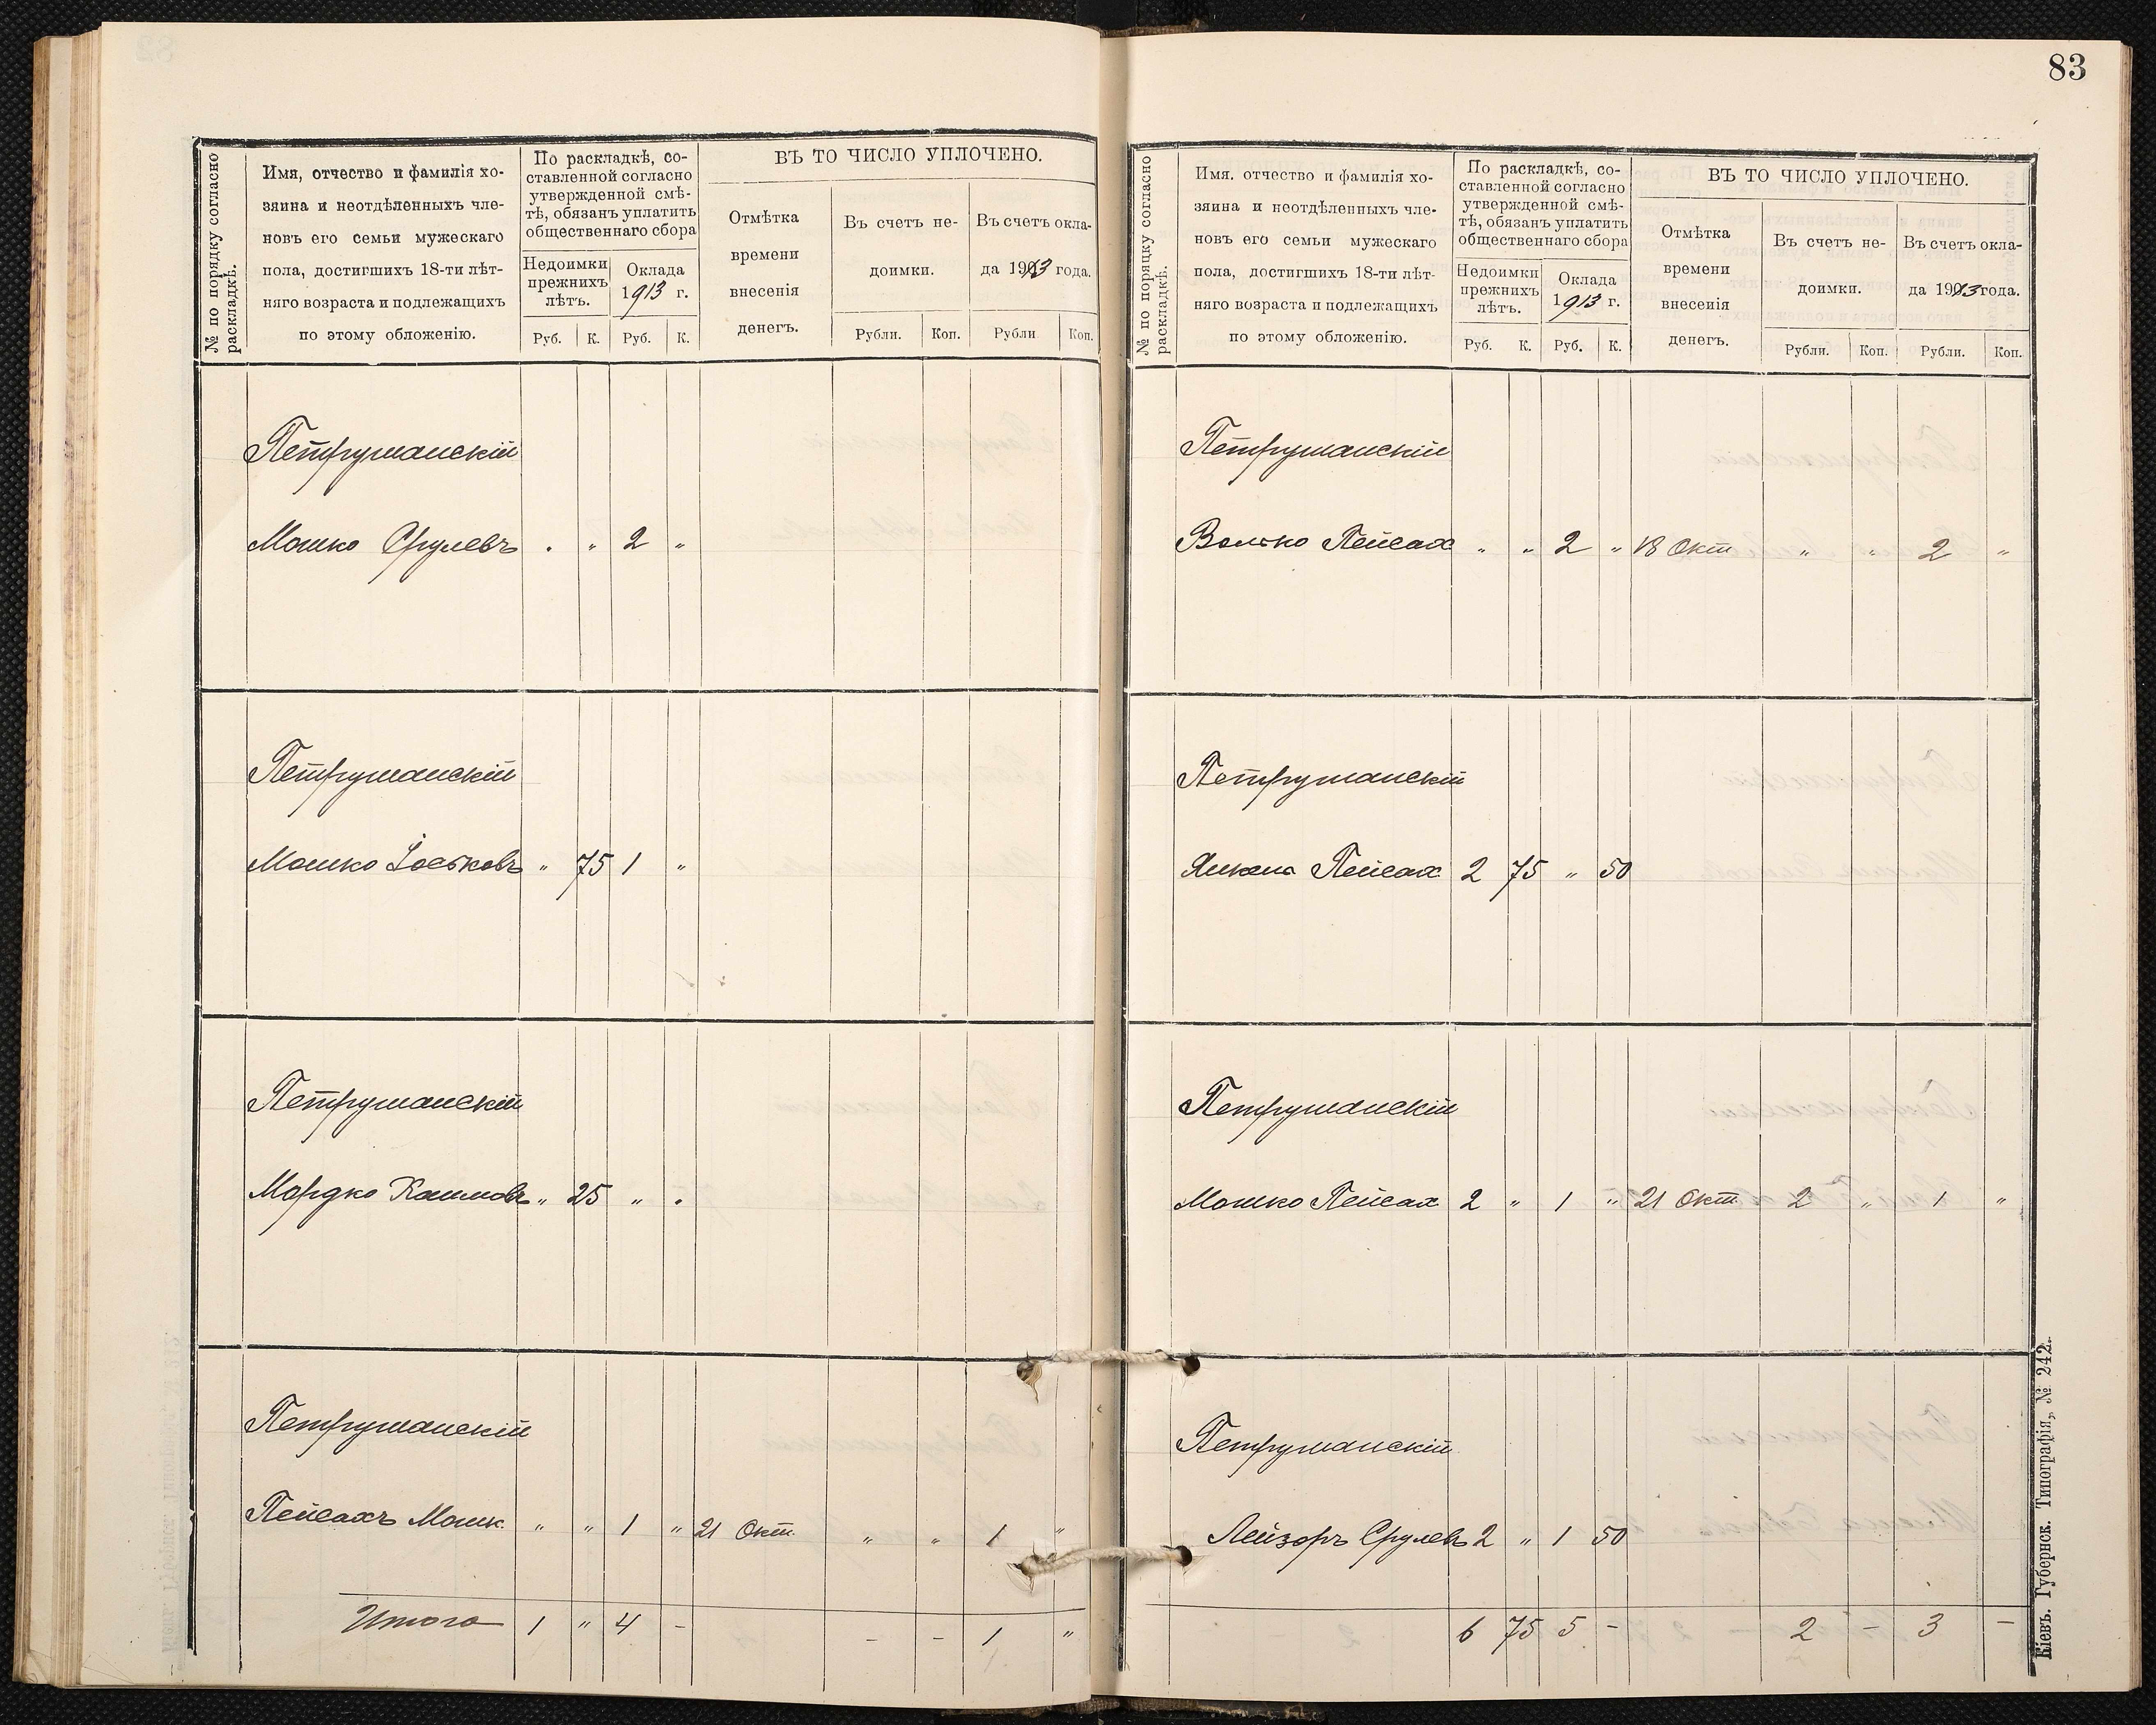 № по порядку согласно
раскладкѣ.
Имя, отчество и фамилія хо-
зяина и неотдѣленныхъ чле-
новъ его семьи мужескаго
пола, достигшихъ 18-ти лѣт-
няго возраста и подлежащихъ
по этому обложенію.
По раскладкѣ, со-
ставленной согласно
утвержденной смѣ-
тѣ, обязанъ уплатить
общественнаго сбора
Недоимки
прежнихъ
лѣтъ.
Оклада
1913 г.
Руб. К. Руб. К.
ВЪ ТО ЧИСЛО УПЛОЧЕНО.
Отмѣтка
времени
внесенія
денегъ.
Въ счетъ не-
доимки.
Въ счетъ окла-
да 1913 года.
Рубли. Коп. Рубли Коп.
Петрушанскій
Мошко Срулевъ „ „ 2 „
Петрушанскій
Мошко Іоськовъ „ 75 1 „
Петрушанскій
Мордко „ 25 „ „
Петрушанскій
Пейсахъ Мошк. „ „ 1 „ 21 Окт. „ „ 1 „
Итого 1 „ 4 - - - 1 „
83
№ по порядку согласно
раскладкѣ.
Имя, отчество и фамилія хо-
зяина и неотдѣленныхъ чле-
новъ его семьи мужескаго
пола, достигшихъ 18-ти лѣт-
няго возраста и подлежащихъ
по этому обложенію.
По раскладкѣ, со-
ставленной согласно
утвержденной смѣ-
тѣ, обязанъ уплатить
общественнаго сбора
Недоимки
прежнихъ
лѣтъ.
Оклада
1913 г.
Руб. К. Руб. К.
ВЪ ТО ЧИСЛО УПЛОЧЕНО.
Отмѣтка
времени
внесенія
денегъ.
Въ счетъ не-
доимки.
Въ счетъ окла-
да 1913 года.
Рубли. Коп. Рубли. Коп.
Петрушанскій
Волько Пейсах „ „ 2 „ 18 Окт „ „ 2 „
Петрушанскій
Янкель Пейсах 2 75 „ 50
Петрушанскій
Мошко Пейсах 2 „ 1 „ 21 Окт 2 „ 1 „
Петрушанскій
Лейзоръ Срулевъ 2 „ 1 50
6 75 5 - 2 - 3 -
Кіевъ. Губернск. Типографія„ № 242.